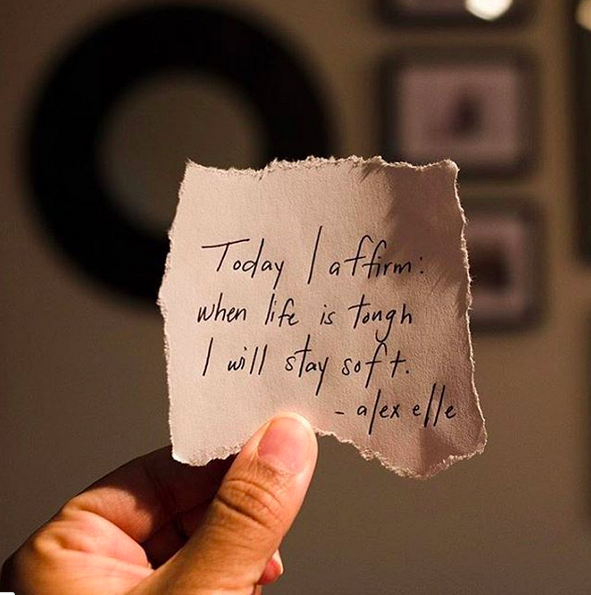 Today I affirm:
when life is tough
I will stay soft.
- alex elle